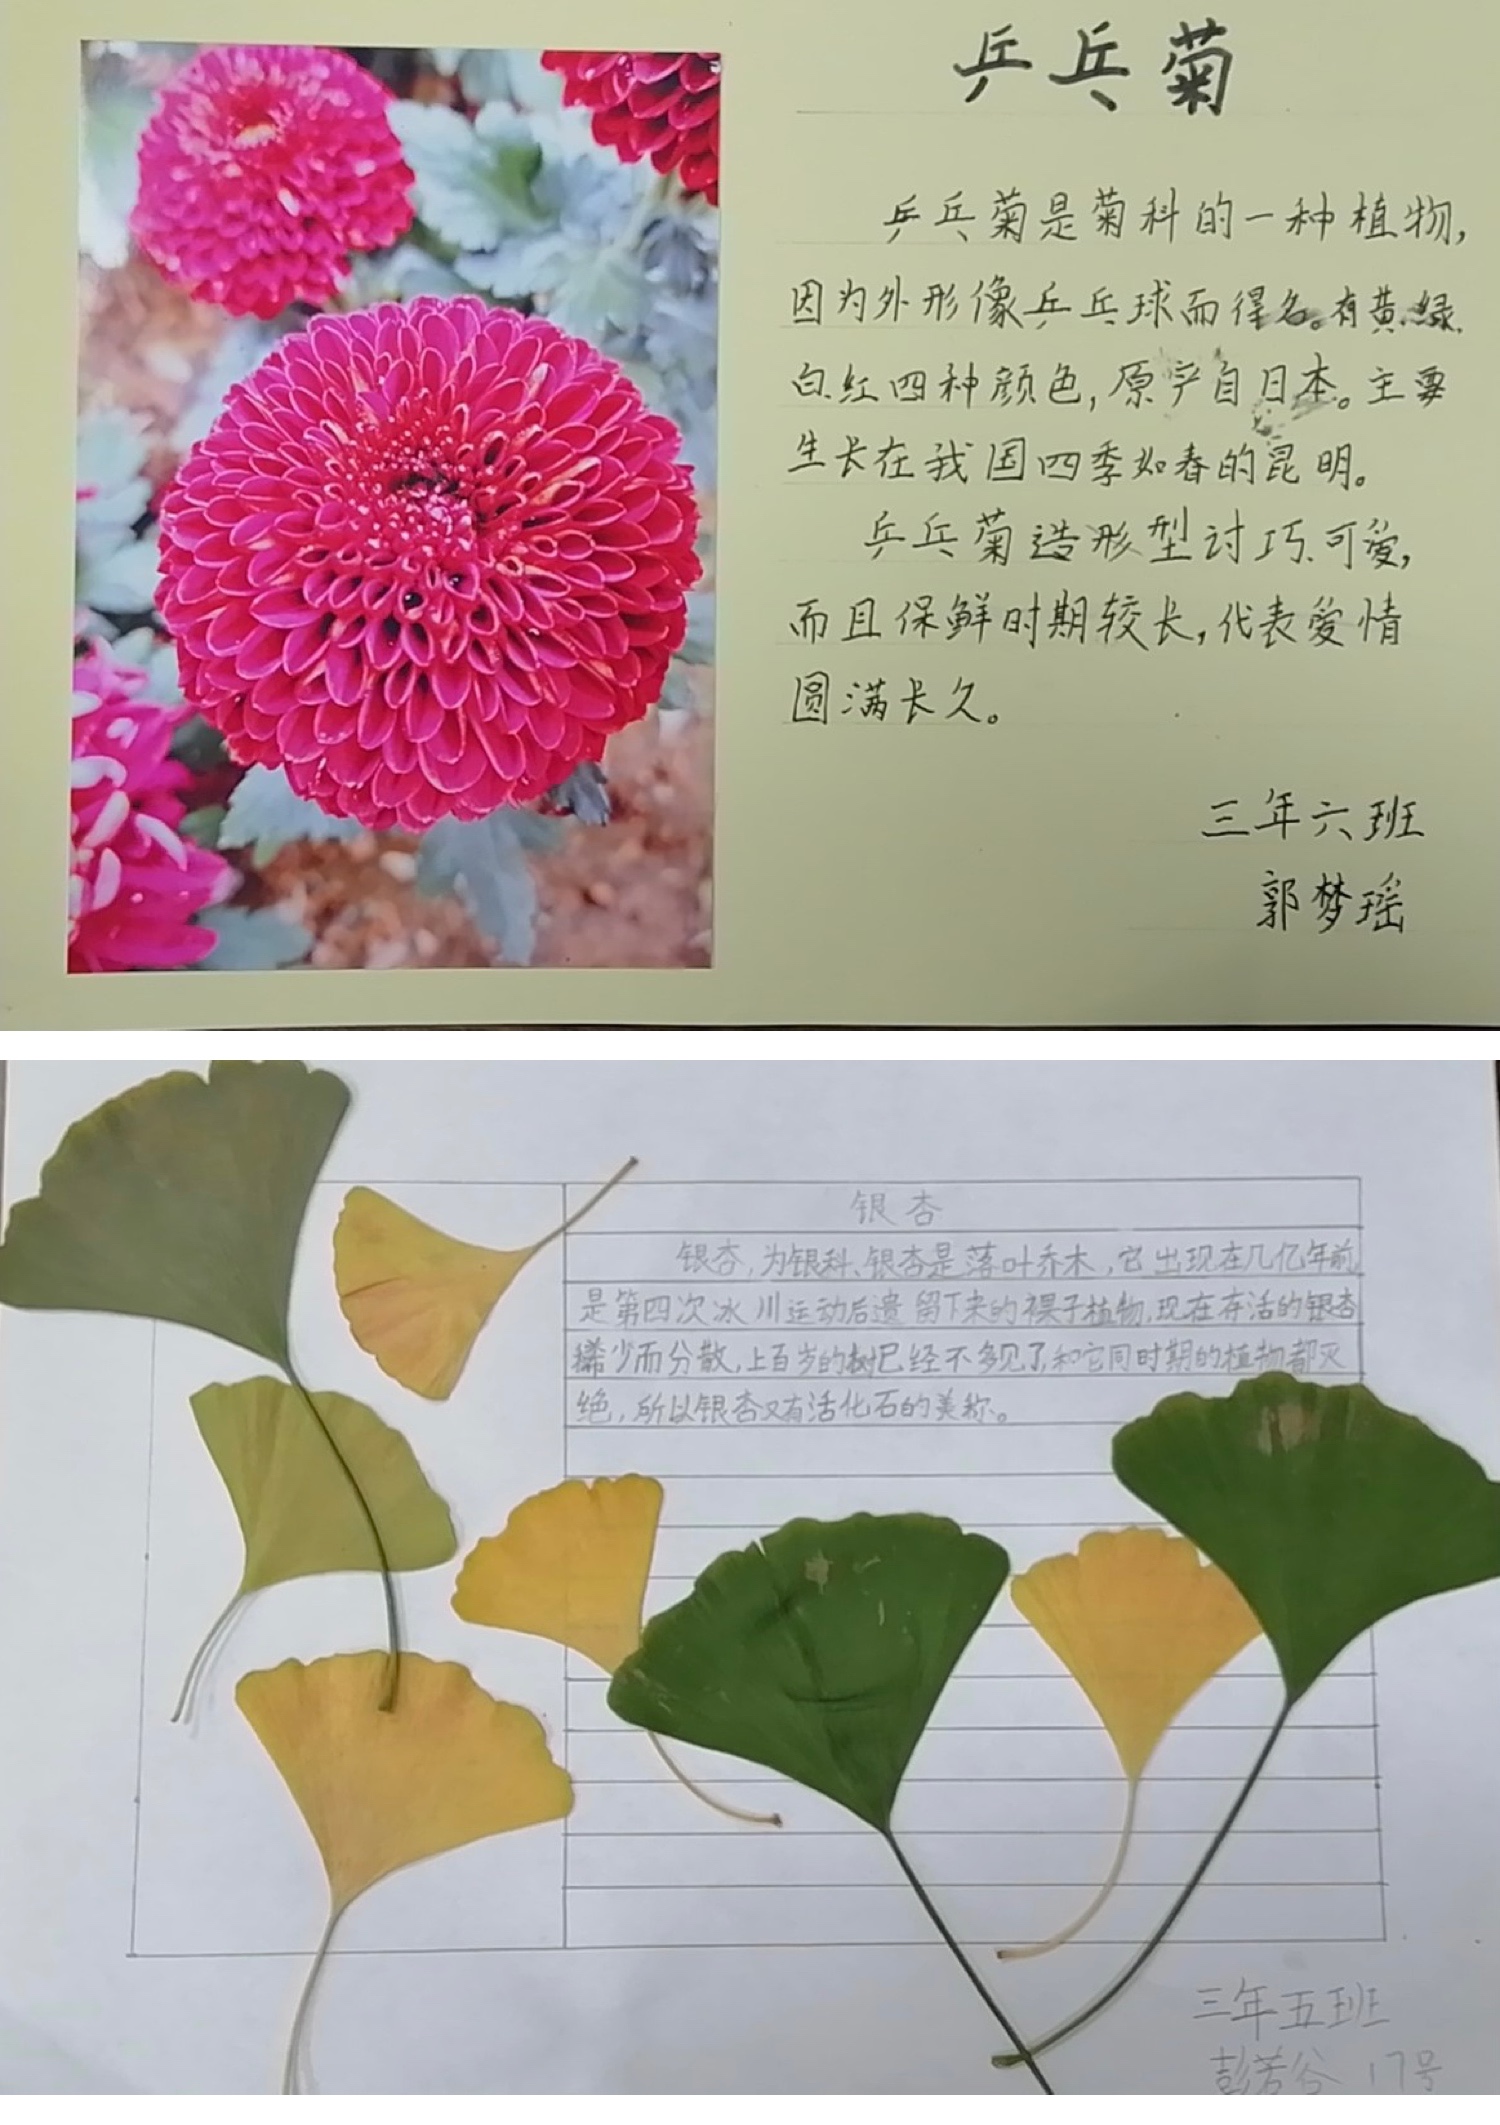 乒乓菊
乒乓菊是菊科的一种植物,
因为外形像乒乓球而得名。有黄.绿.
白.红四种颜色,原产自日本。主要
生长在我国四季如春的昆明。
乒乓菊造形型讨巧.可爱,
而且保鲜时期较长,代表爱情
圆满长久。
三年六班
郭梦瑶
银杏
银杏,为银科、银杏是落叶乔木,它出现在几亿年前
是第四次冰川运动后遗留下来的裸子植物,现在存活的银杏
稀少而分散,上百岁的树已经不多见了,和它同时期的植物都灭
绝,所以银杏又有活化石的美称。
三年五班
彭若谷 17号